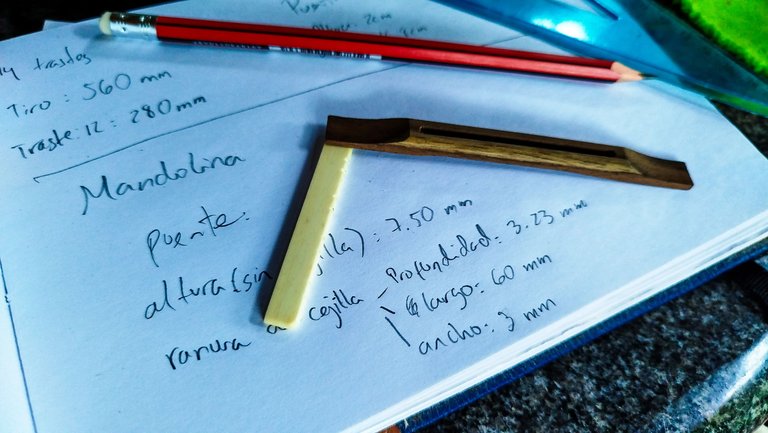 trastos
Tiro: 560 mm
Traste: 12: 280 mm
Mandolina
puente:
altura (sin jilla): 7.50 mm
ranura cejilla - profundidad: 3.23 mm
largo: 60 mm
ancho: 3 mm